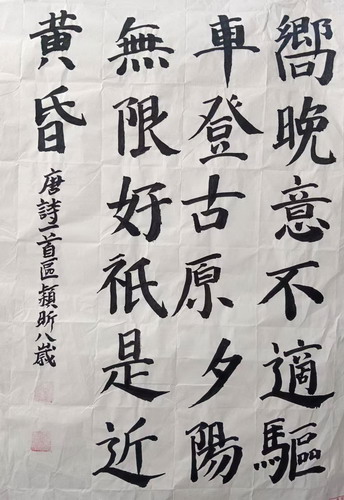 嚮晚意不適驅
車登古原夕陽
無限好祇是近
黃昏
唐詩一首區穎昕八歲